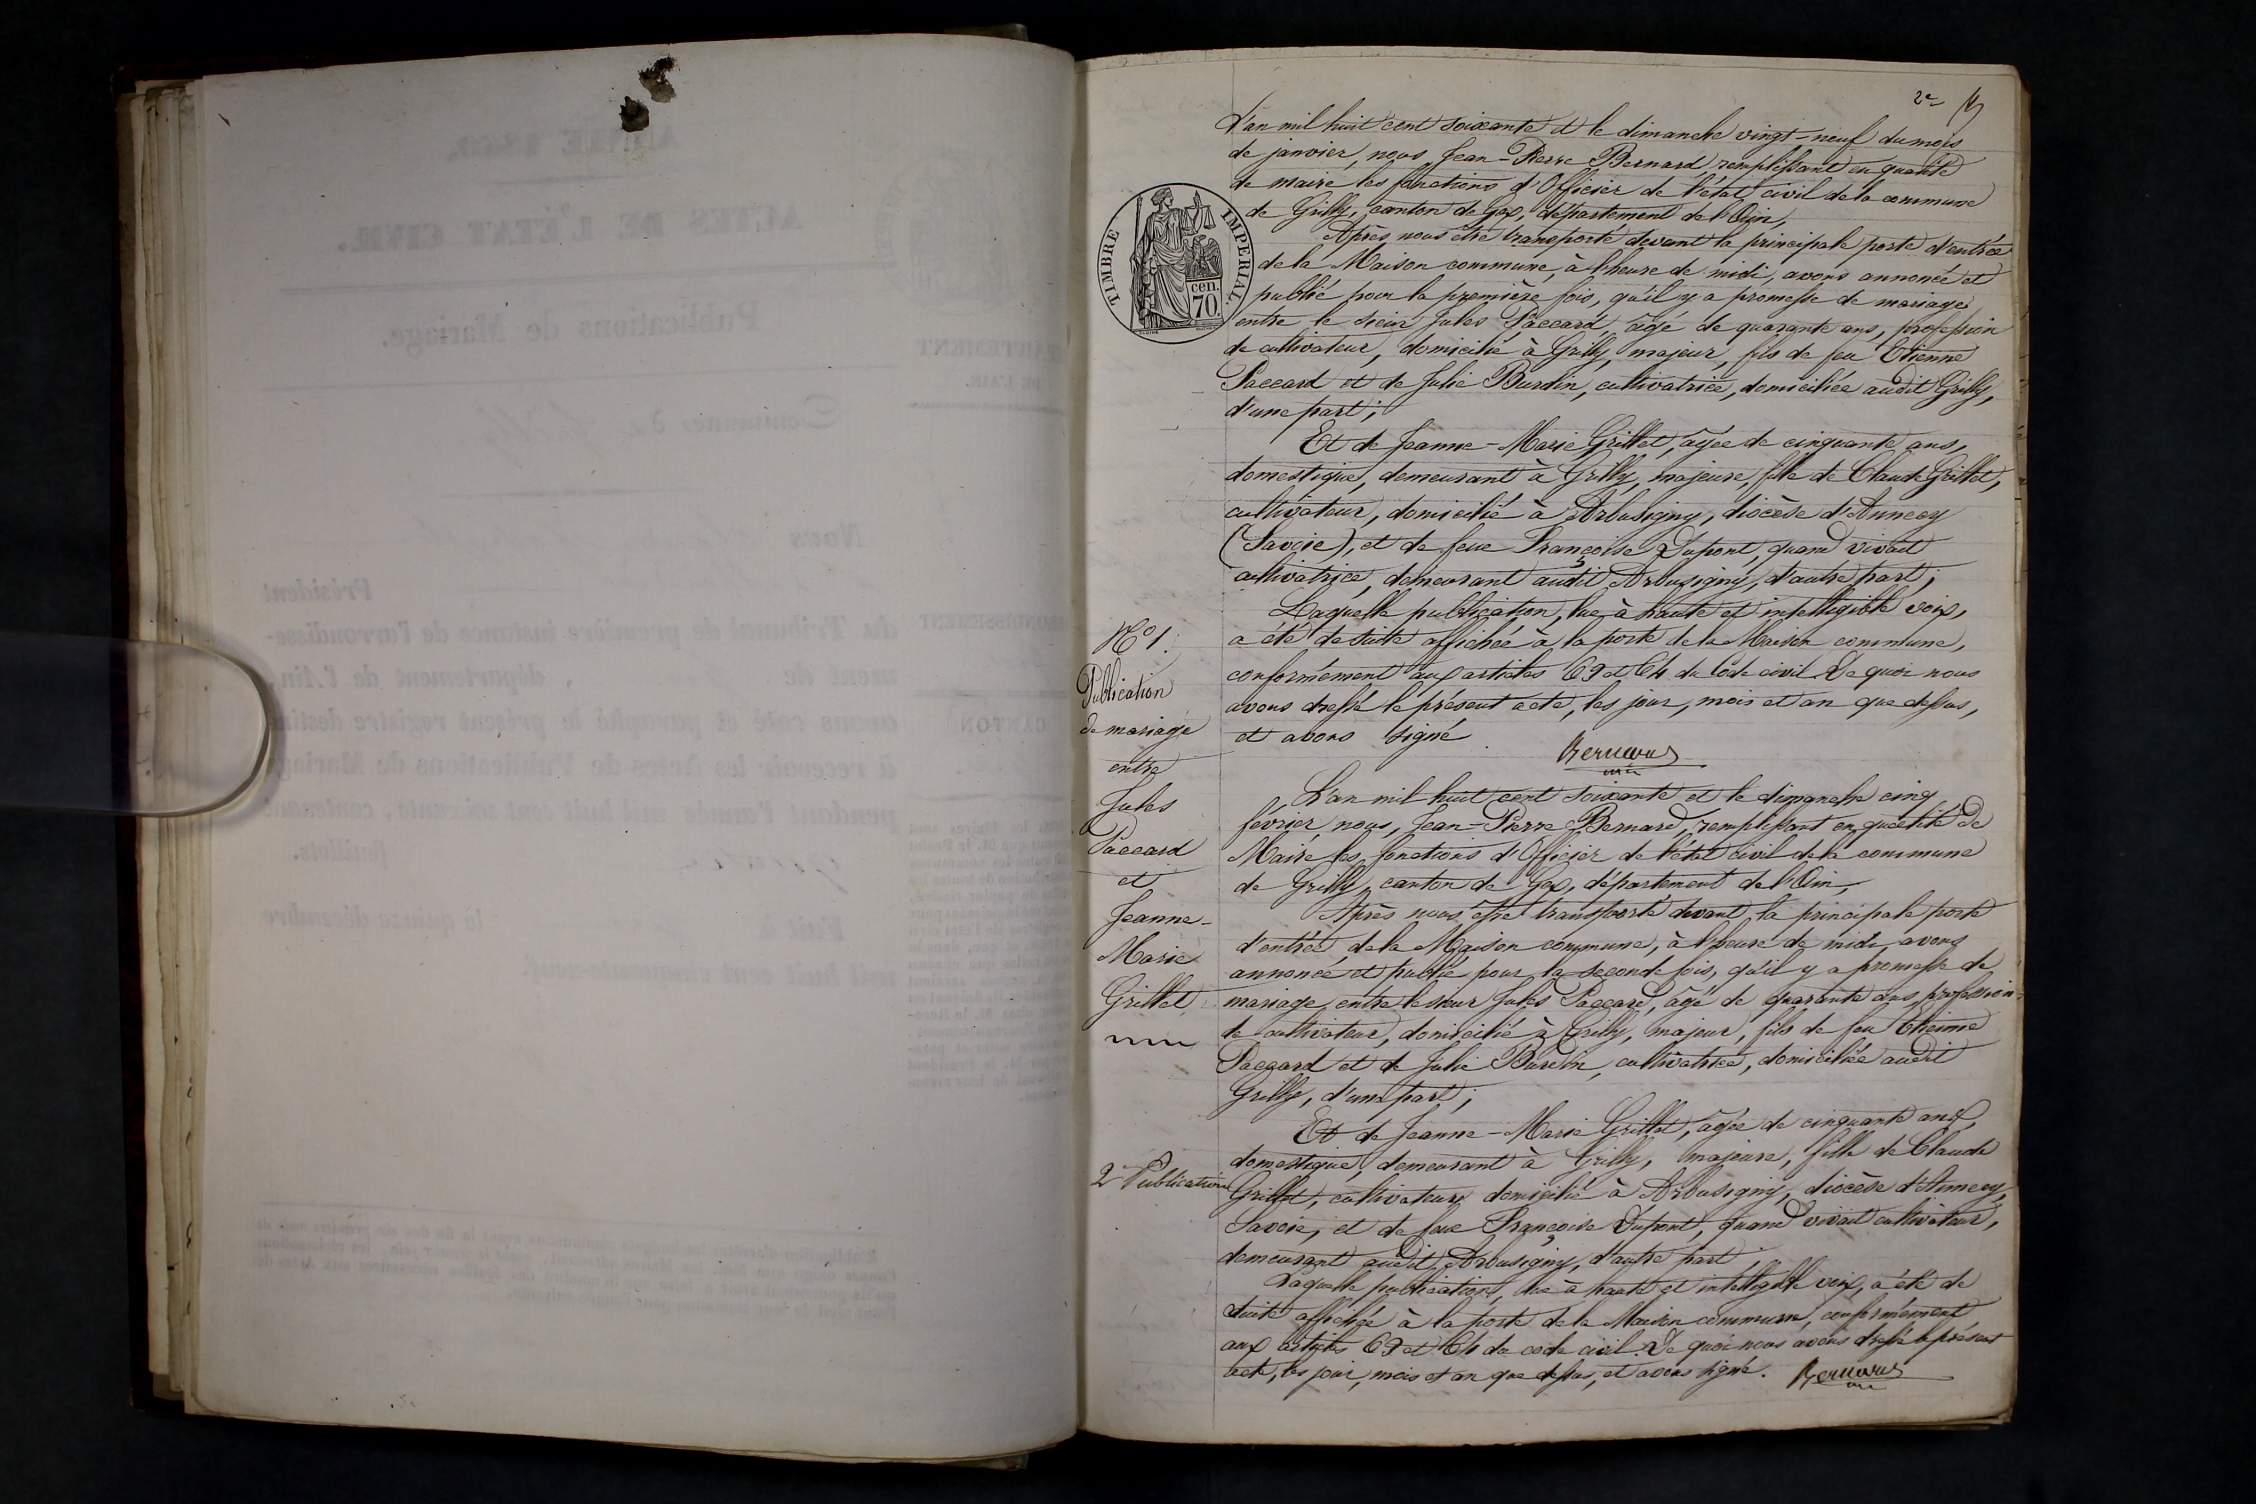 2e
L'an mil huit cent soixante et le dimanche vingt-neuf du mois
de janvier, nous Jean-Pierre Bernard, remplissant en qualité
de maire les fonctions d'Officier de l'état civil de la commune
de Grilly, canton de Gex, département de l'Ain,
Après nous être transporté devant la principale porte d'entrée
de la Maison commune, à l'heure de midi, avons annoncé et
publié pour la première fois, qu'il y a promesse de mariage
entre le sieur Jules Paccard, âgé de quarante ans, profession
de cultivateur, domicilié à Grilly, majeur, fils de feu Etienne
Paccard et de Julie Burdin, cultivatrice, domiciliée audit Grilly,
d'une part;
Et de Jeanne-Marie Grillet, âgée de cinquante ans,
domestique, demeurant à Grilly, majeure, fille de Claude Grillet,
cultivateur, domicilié à Arbusigny, diocèse d'Annecy
(Savoie), et de feue Françoise Dupont, quand vivait
cultivatrice, demeurant audit Arbusigny, d'autre part;
Laquelle publication, lue à haute et intelligible voix,
a été de suite affichée à la porte de la Maison commune,
conformément aux articles 63 et 64 du Code civil. De quoi nous
avons dressé le présent acte, les jour, mois et an que dessus,
et avons signé.
Bernard
TIMBRE IMPERIAL.
70 cen.
No 1.
Publication
de mariage
entre
Jules
Paccard
et
Jeanne-
Marie
Grillet
L'an mil huit cent soixante et le dimanche cinq
février, nous, Jean-Pierre Bernard, remplissant en qualité de
Maire les fonctions d'Officier de l'état civil de la commune
de Grilly, canton de Gex, département de l'Ain,
Après nous être transporté devant la principale porte
d'entrée de la Maison commune, à l'heure de midi, avons
annoncé et publié pour la seconde fois, qu'il y a promesse de
mariage entre le sieur Jules Paccard, âgé de quarante ans, profession
de cultivateur, domicilié à Grilly, majeur, fils de feu Etienne
Paccard et de Julie Burdin, cultivatrice, domiciliée audit
Grilly, d'une part;
Et de Jeanne-Marie Grillet, âgée de cinquante ans,
domestique, demeurant à Grilly, majeure, fille de Claude
Grillet, cultivateur, domicilié à Arbusigny, diocèse d'Annecy,
Savoie, et de feue Françoise Dupont, quand vivait cultivateur,
demeurant audit Arbusigny, d'autre part.
Laquelle publication, lue à haute et intelligible voix, a été de
suite affichée à la porte de la Maison commune, conformément
aux articles 63 et 64 du code civil. De quoi nous avons dressé le présent
acte, les jour, mois et an que dessus, et avons signé.
Bernard
2e Publication